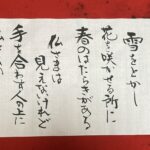 雪をとかし
花を咲かせる所に
春のはたらきがある
仏さまは
見えないけれど
手を合わす人の上に